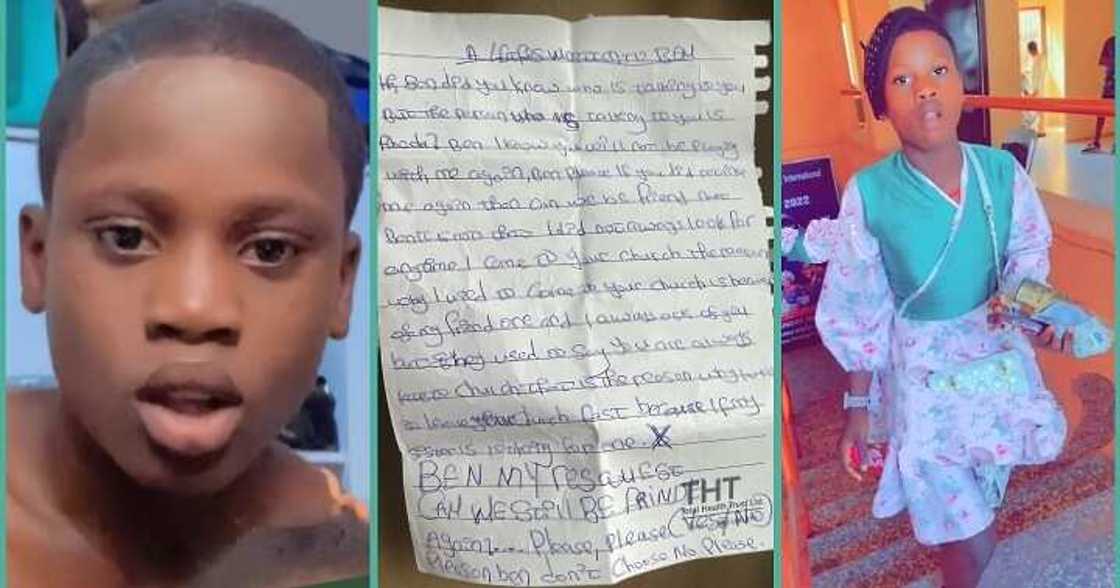 Hi, Ben did you know who is talking to you
But the person who is talking to you is
Rhoda? Ben I know you will not be playing
with me again, Ben please if you
me again then can we be friend
look for
anytime I come to your church the reason
why I used to come to your church is because
of my friend one and I always ask of you
but they used to say you are always
Church that is the reason why
to leave your church fast because
is looking for me. X
BEN MY resQUEST
CAN WE STILL BE FRIND
Again.... Please, Please (Yes/No)
Please ben don't Choose No Please.
THT
Total Health Trust Ltd
International
2022